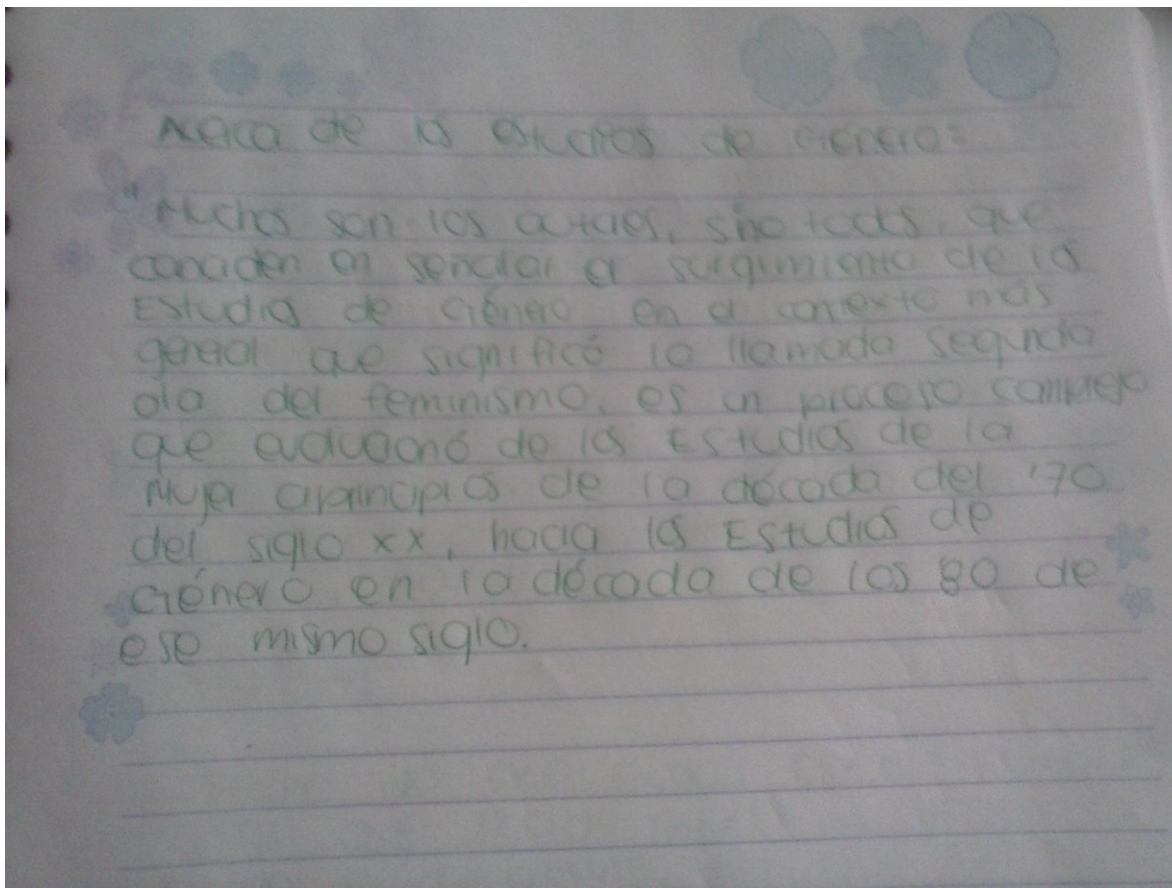 Acerca de los estudios de Género:
"Muchos son los autores, sino todos, que
coinciden en señalar el surgimiento de los
Estudios de Género en el contexto más
general que significó la llamada segunda
ola del feminismo, es un proceso complejo
que evolucionó de los Estudios de la
Mujer a principios de la década del '70
del siglo XX, hacia los Estudios de
Género en la década de los 80 de
ese mismo siglo.